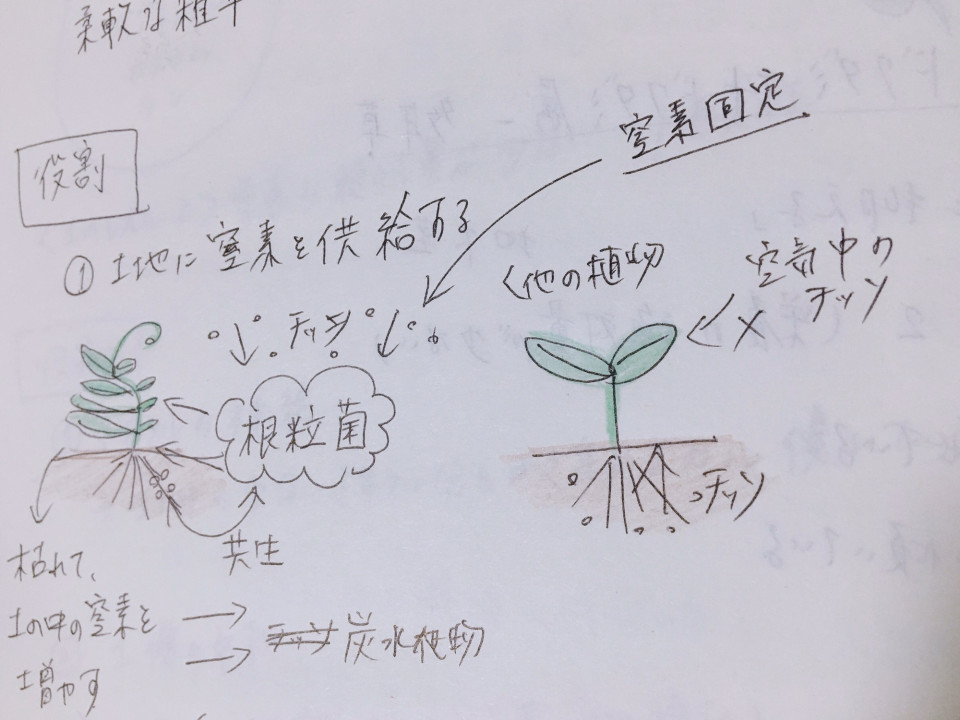 柔軟な雑草
役割
窒素固定
①土地に窒素を供給する
チッソ
根粒菌
共生
枯れて、
土の中の窒素を
増やす
炭水植物
他の植物
空気中の
チッソ
チッソ